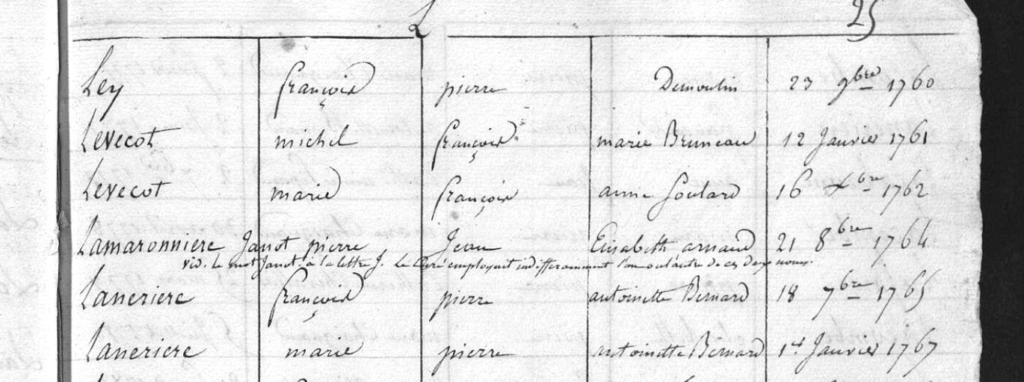 L 25
Ley françois pierre Demoulin 23 9bre 1760
Levecot michel françois marie Bruneau 12 Janvier 1761
Levecot marie françois anne Goulard 16 Xbre 1762
Lamaronniere Janot pierre Jean Elisabeth arnaud 21 8bre 1764
vid. le mot Janot à la lettre J. Le Curé employait indifferamment l'un ou l'autre de ces deux noms.
Laneriere françois pierre antoinette Bernard 18 7bre 1765
Laneriere marie pierre antoinette Bernard Janvier 1767